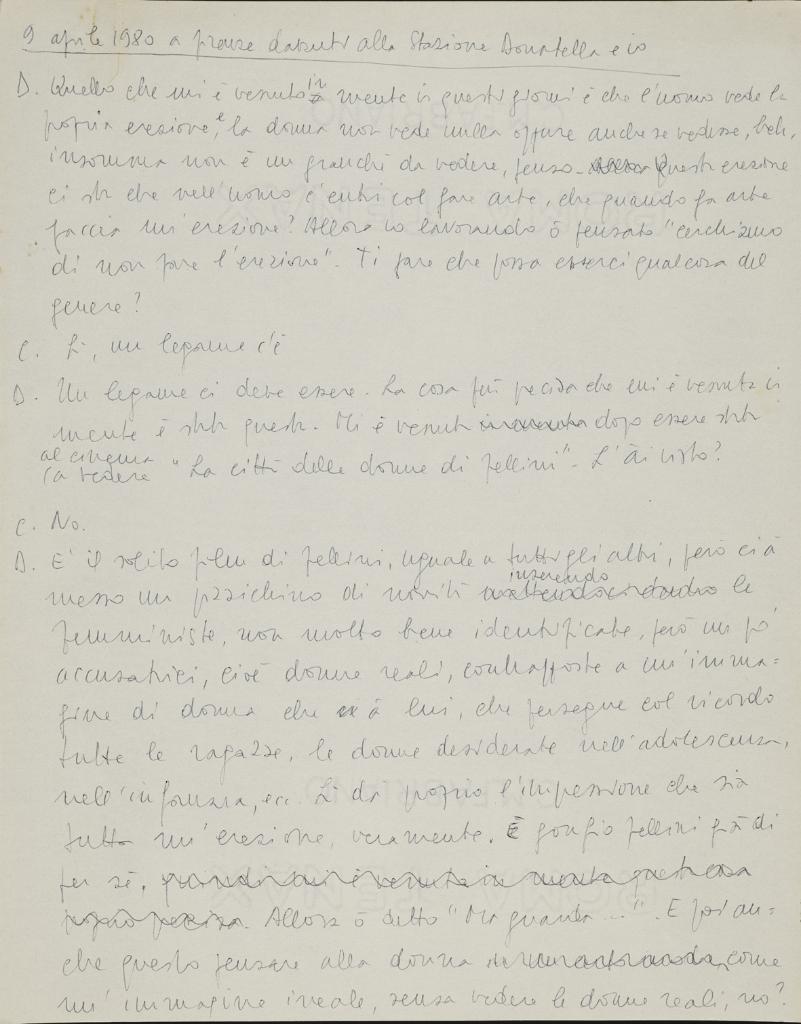 9 aprile 1980 a pranzo davanti alla Stazione Donatella e io
D. Quello che mi è venuto in mente in questi giorni è che l'uomo vede la
propria erezione, e la donna non vede nulla oppure anche se vedesse, beh,
insomma non è un granché da vedere, penso. Questa erezione
ci sta che nell'uomo c'entri col fare arte, che quando fa arte
faccia un'erezione? Allora io lavorando ò pensato "cerchiamo
di non fare l'erezione". Ti pare che possa esserci qualcosa del
genere?
C. Sì, un legame c'è
D. Un legame ci deve essere. La cosa più precisa che mi è venuta in
mente è stata questa. Mi è venuta dopo essere stata
al cinema
a vedere "La città delle donne di Fellini". L'ài visto?
C. No.
D. E' il solito film di Fellini, uguale a tutti gli altri, però ci à
messo un pizzichino di novità inserendo le
femministe, non molto bene identificate, però un po'
accusatrici, cioè donne reali, contrapposte a un'imma=
gine di donna che à lui, che persegue col ricordo
tutte le ragazze, le donne desiderate nell'adolescenza,
nell'infanzia, ecc. Lì dà proprio l'impressione che sia
tutta un'erezione, veramente. È gonfio Fellini già di
per sé. quindi mi è venuta in mente questa cosa
proprio precisa. Allora ò detto "Ma guarda ...". E poi an=
che questo pensare alla donna come
un'immagine ireale, senza vedere le donne reali, no?